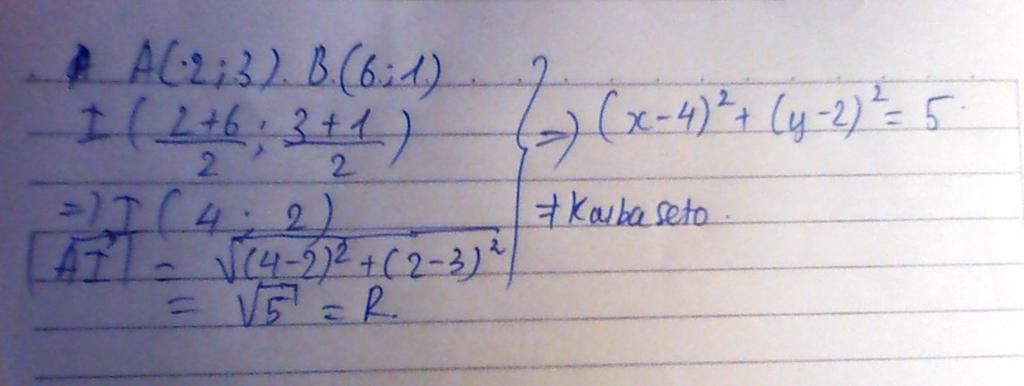 A(2;3). B.(6;1)
I(\frac{2+6}{2}; \frac{3+1}{2})
=) I(4; 2)
|\overrightarrow{AI}| = \sqrt{(4-2)^2+(2-3)^2}
= \sqrt{5} = R.
=) (x-4)^2+(y-2)^2=5
Kaiba seto.